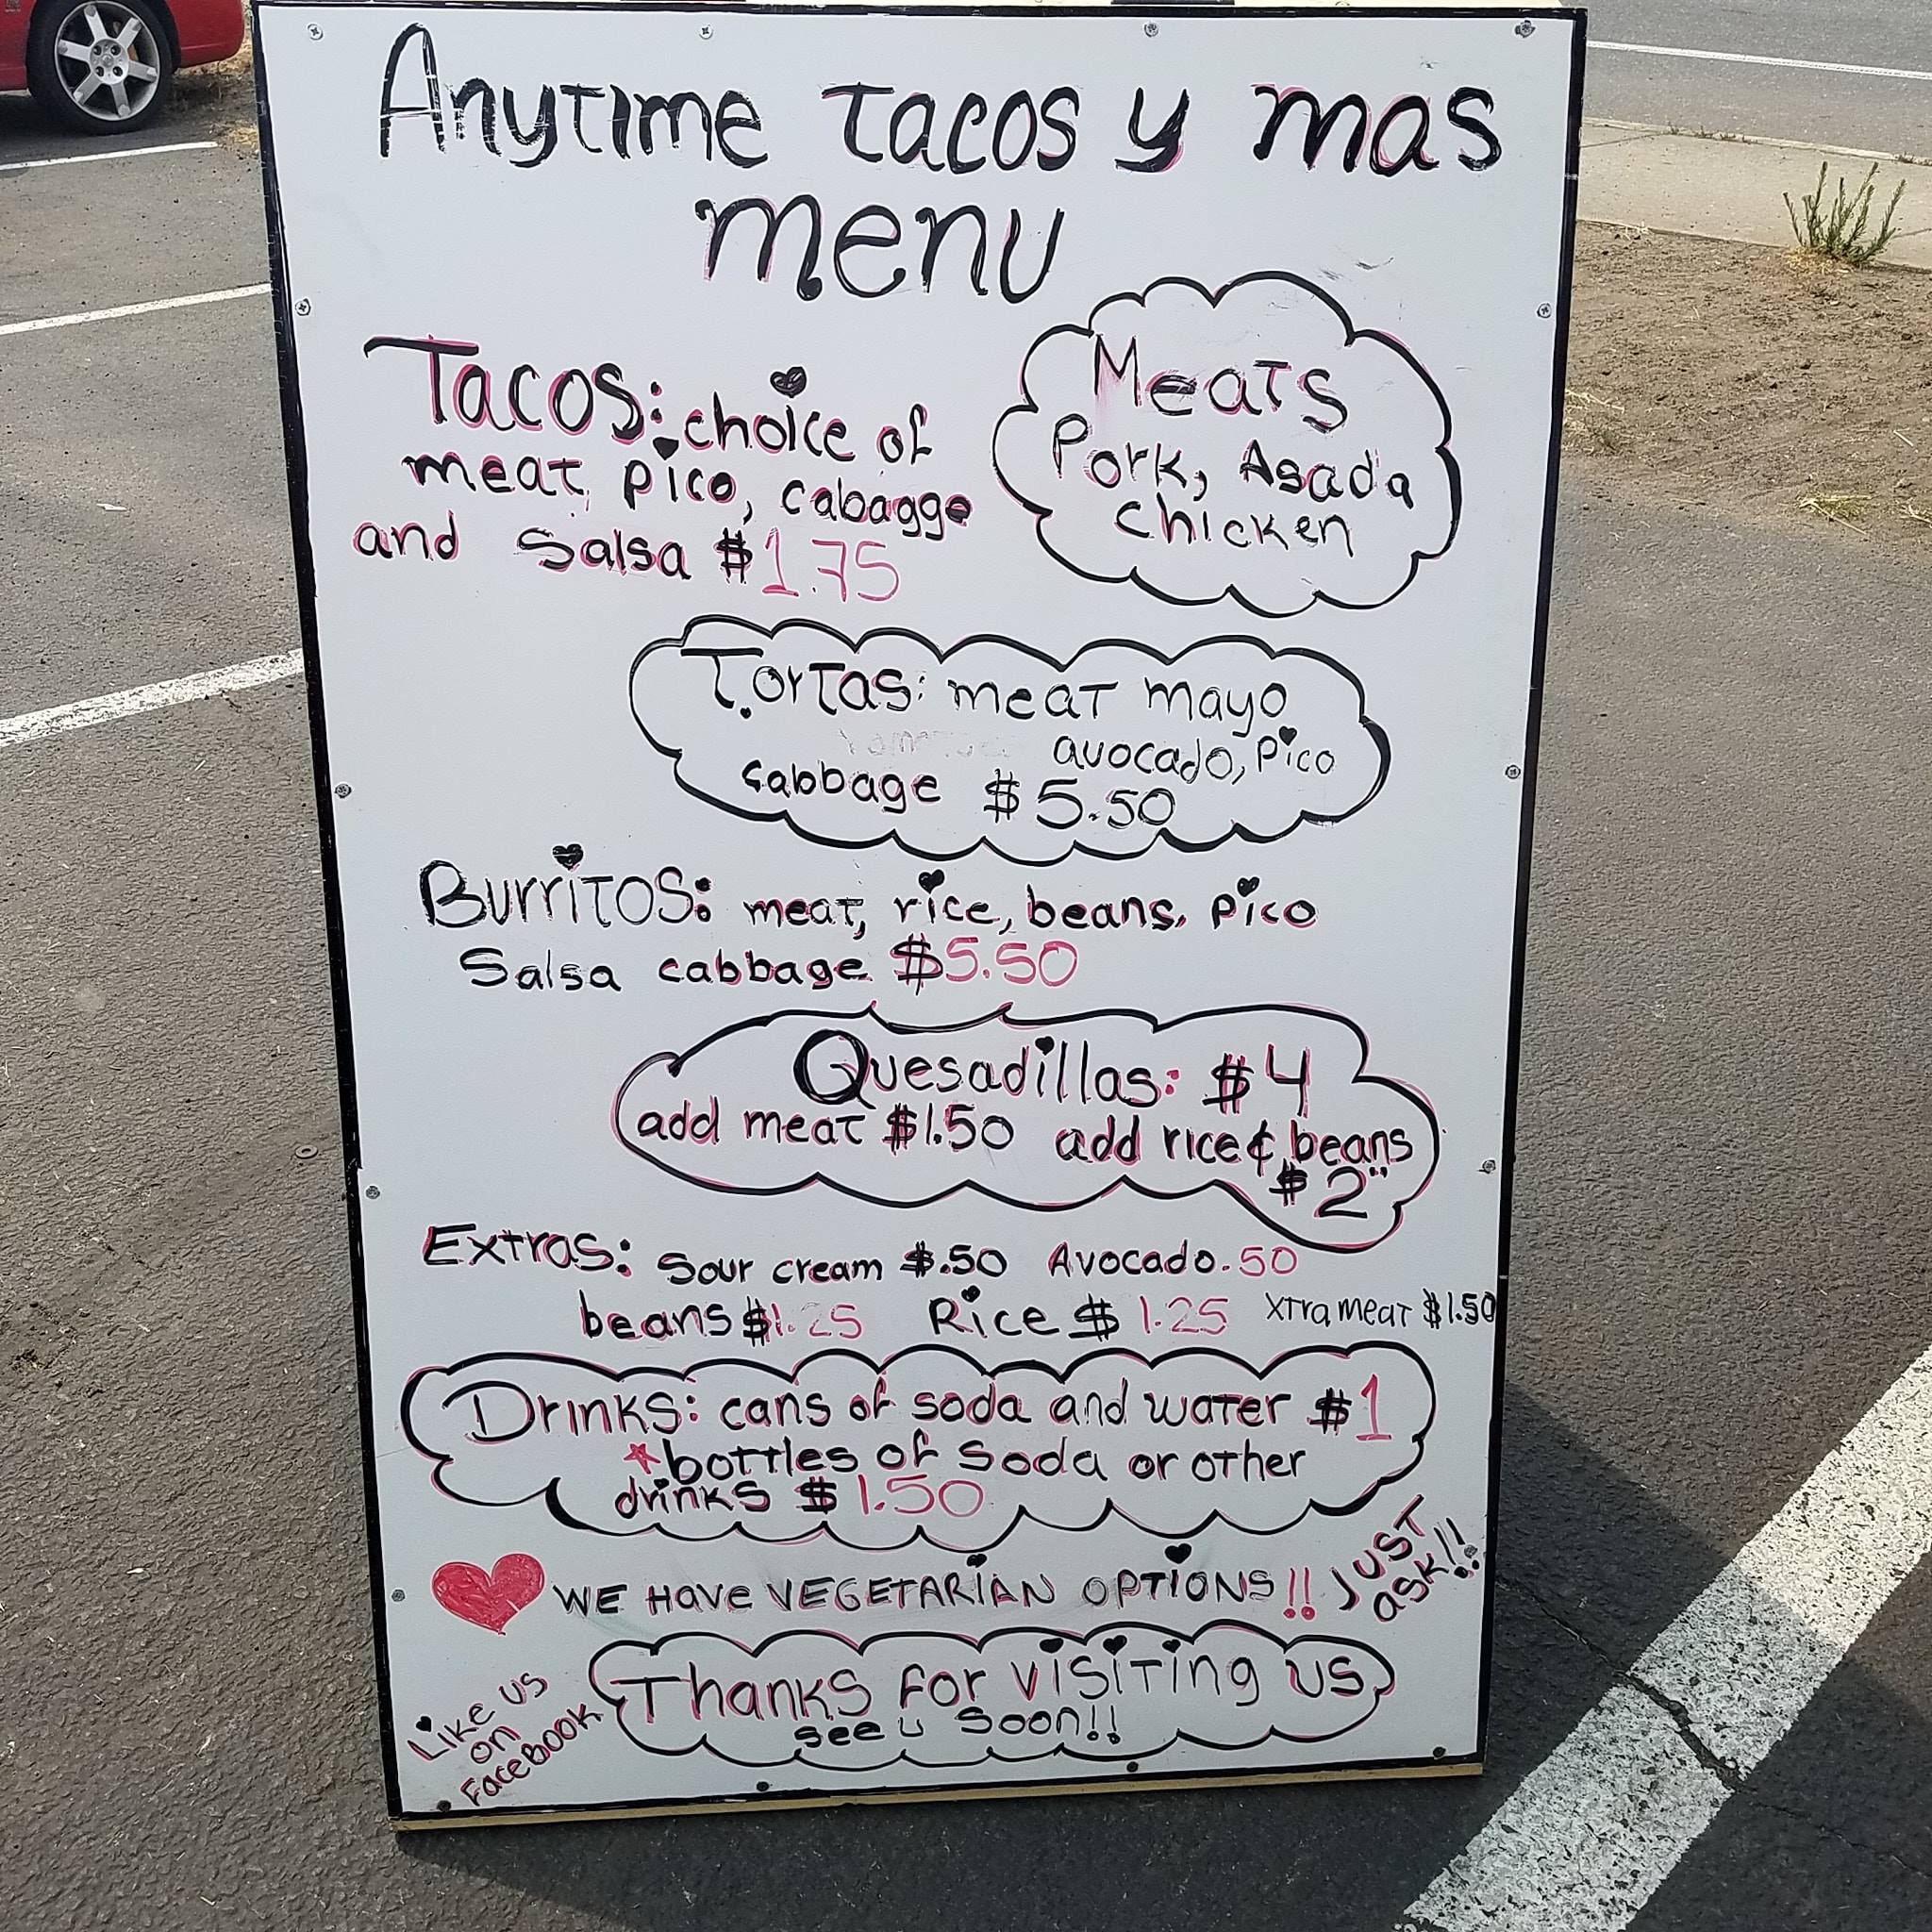 Anytime Tacos y mas
menu
Tacos: choice of
meat, pico, cabagge
and Salsa $1.75
Meats
Pork, Asada
Chicken
Tortas: meat mayo
avocado, Pico
cabbage $5.50
Burritos: meat, rice, beans, pico
Salsa cabbage $5.50
Quesadillas: $4
add meat $1.50 add rice & beans
$2
Extras: Sour cream $.50 Avocado .50
beans $1.25 Rice $1.25 Xtra meat $1.50
Drinks: cans of soda and water $1
*bottles of Soda or other
drinks $1.50
WE Have VEGETARIAN OPTIONS!! JUST
ASK!!
Thanks for visiting us
see u soon!!
Like us
on
FaceBook